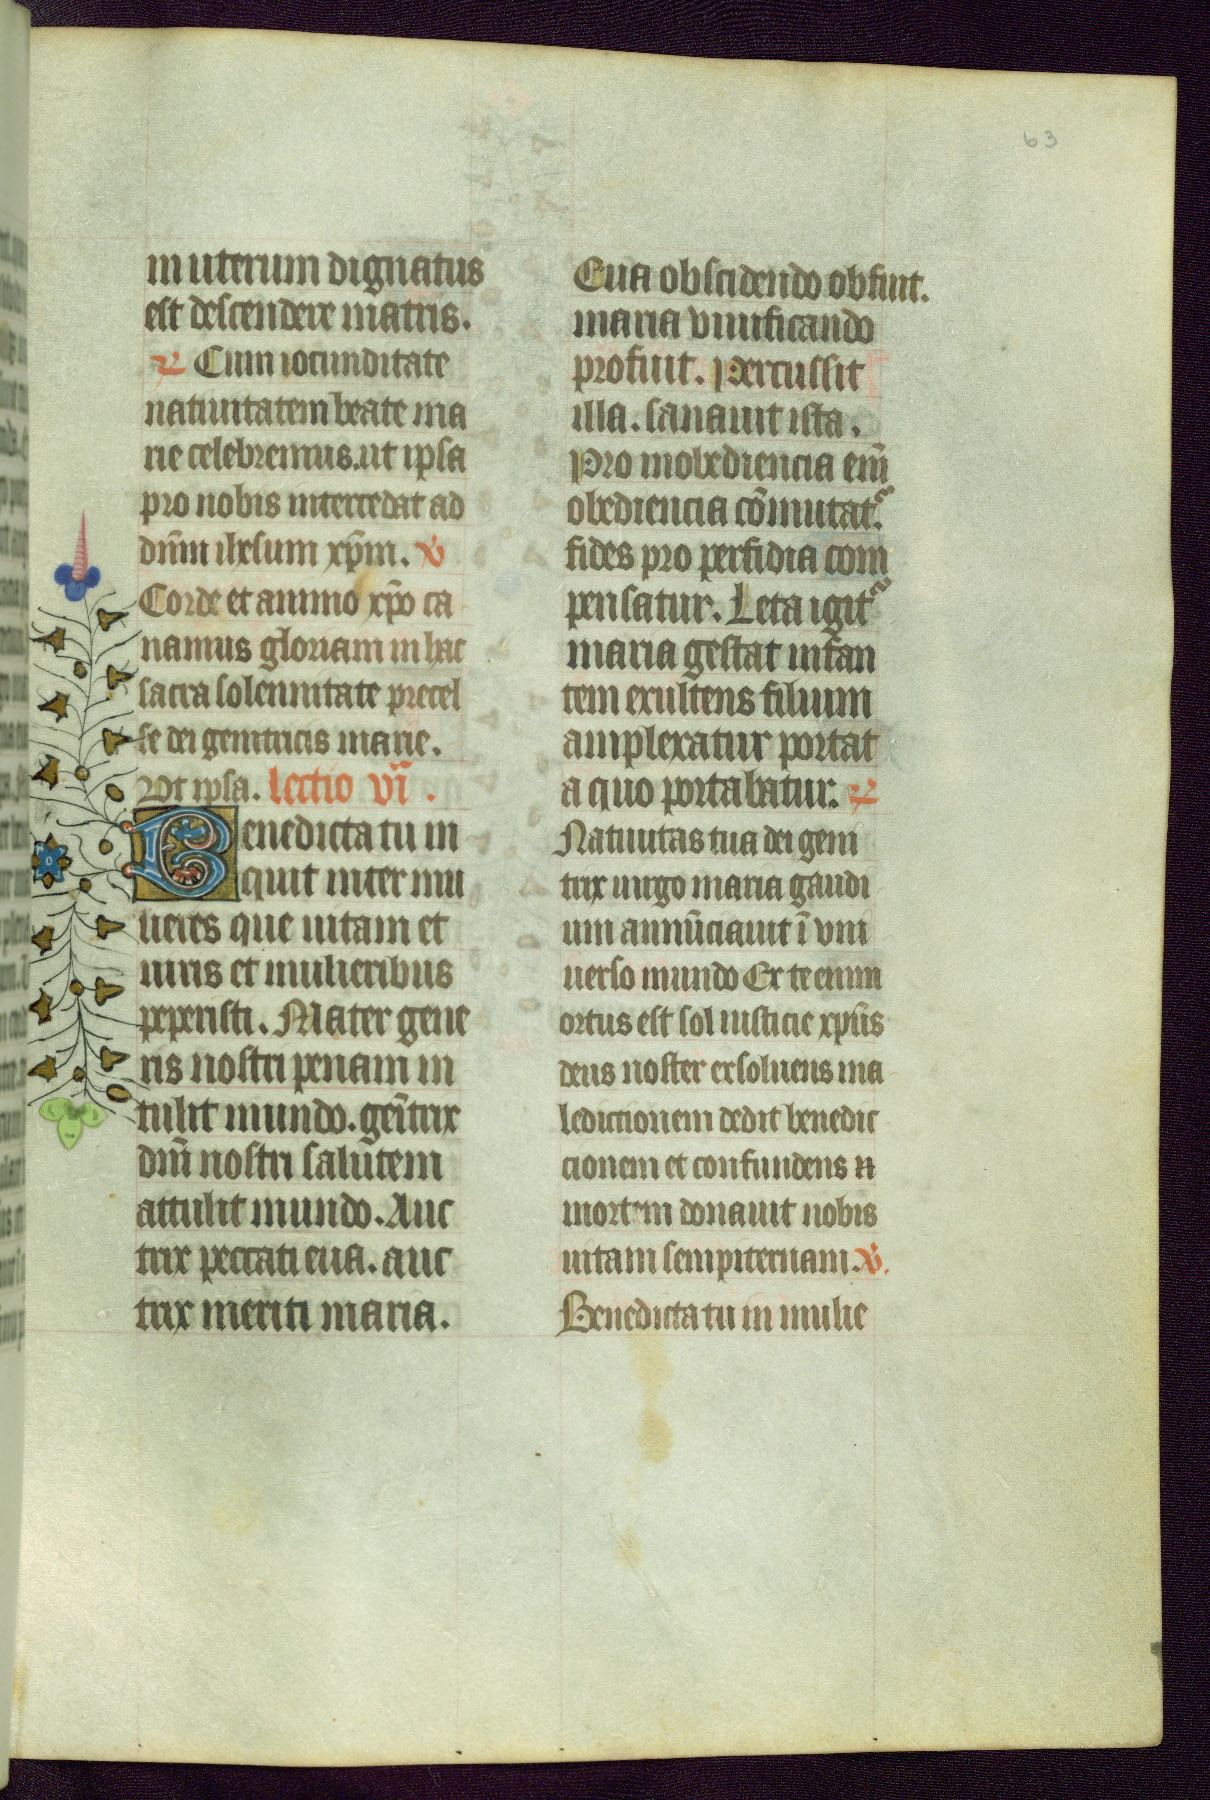 63
in uterum dignatus
est descendere matris.
R Cum iocunditate
natiuitatem beate ma
rie celebremus. ut ipsa
pro nobis intercedat ad
dn̄m ihesum xp̄m. V
Corde et animo xp̄o ca
namus gloriam in hac
sacra solennitate precel
se dei genitricis marie.
Vt ipsa. Lectio vi.
Benedicta tu in
quit inter mu
lieres que uitam et
uiris et mulieribus
peperisti. Mater gene
ris nostri penam in
tulit mundo. gen̄trix
dn̄i nostri salutem
attulit mundo. Auc
trix peccati eua. auc
trix meriti maria.
Eua obscidendo obfuit.
maria viuificando
profuit. Percussit
illa. sanauit ista.
Pro inobediencia em̄
obediencia cōmutat.
fides pro perfidia com
pensatur. Leta igit
maria gestat infan
tem exultens filium
amplexatur portat
a quo portabatur. R
Natiuitas tua dei geni
trix uirgo maria gaudi
um annūciauit ī vni
uerso mundo Ex te enim
ortus est sol iusticie xp̄us
deus noster exsoluens ma
ledictionem dedit benedic
cionem et confundens
mortem donauit nobis
uitam sempiternam. V.
Benedicta tu in mulie